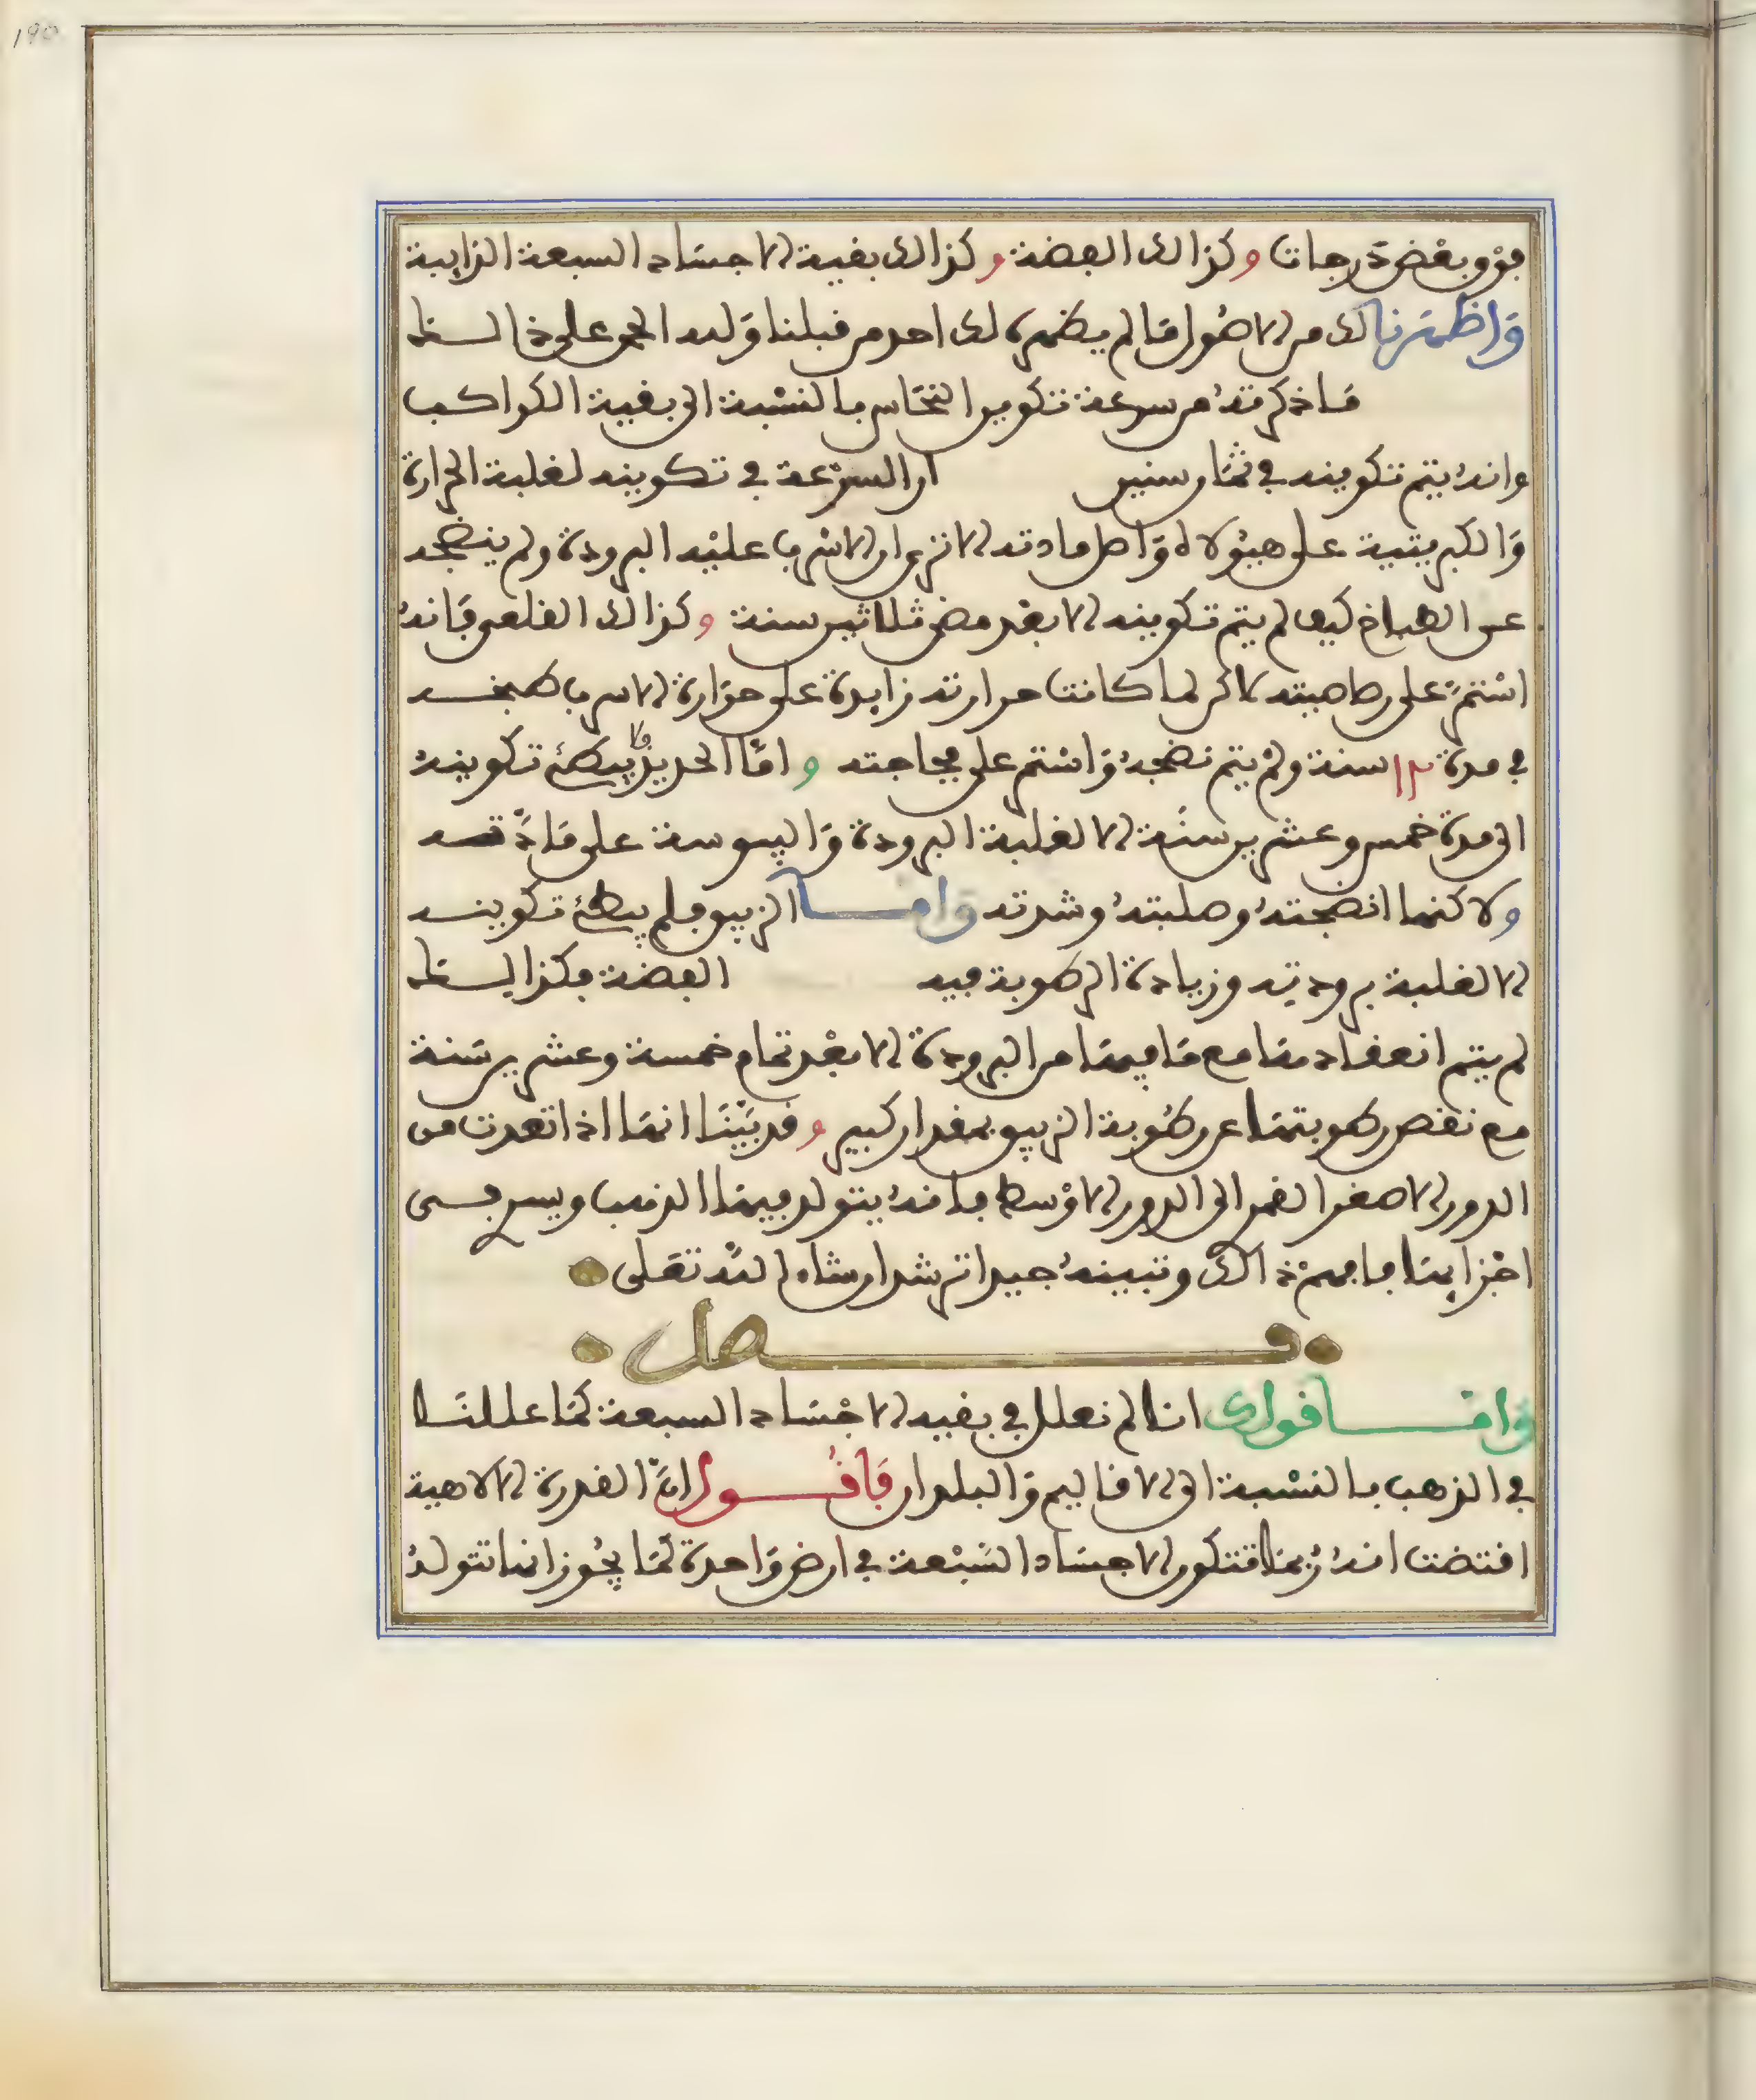 190
فوق بعض درجات وكذالك الفضة وكذالك بقية الاجساد السبعة الذايبة
واظهرنا لك من الاصول ما لم يظهره لك احد من قبلنا ولله الحمد على ذالك
ما ذكرته من سرعة تكوين النحاس بالنسبة الى بقية الكواكب
وانه يتم تكوينه في ثمان سنين ان السرعة في تكوينه لغلبة الحرارة
والكبريتية على هيولاه واصل مادته الا ترى ان الاسرب عليه البرودة ولم ينضجه
عن الطباخ كيف لم يتم تكوينه الا بعد مضي ثلاثين سنة وكذالك القلعي فانه
استمر على رصاصيته لاكن لما كانت حرارته زايدة على حرارة الاسرب طبخه
في مدة ١٢ سنة ولم يتم نضجه واستمر على فجاجته واما الحديد فلا يبطئ تكوينه
الى مدة خمس وعشرين سنة الا لغلبة البرودة واليبوسة على مادته
ولاكنها انضجته وصلبته وشدته واما الزيبق فلم يبطئ تكوينه
الا لغلبة برودته وزيادة الرطوبة فيه الفضة فكذالك
لم يتم انعقادها مع ما فيها من البرودة الا بعد تمام خمسة وعشرين سنة
مع نقص رطوبتها عن رطوبة الزيبق بمقدار كبير وقد بينا انها اذا تعدت من
الدور الاصغر القمر الى الدور الاوسط فانه يتولد فيها الذهب ويسري في
اجزايها فافهم ذالك وتبينه جيدا ترشد ان شاء الله تعلى
فصل
واما قولك اننا لم نعلل في بقيه الاجساد السبعة كما عللنا
في الذهب بالنسبة الى الاقاليم والبلدان فاقول ان القدرة الالاهية
اقتضت انه ربما تتكون الاجساد السبعة في ارض واحدة كما يجوز انها تتولد